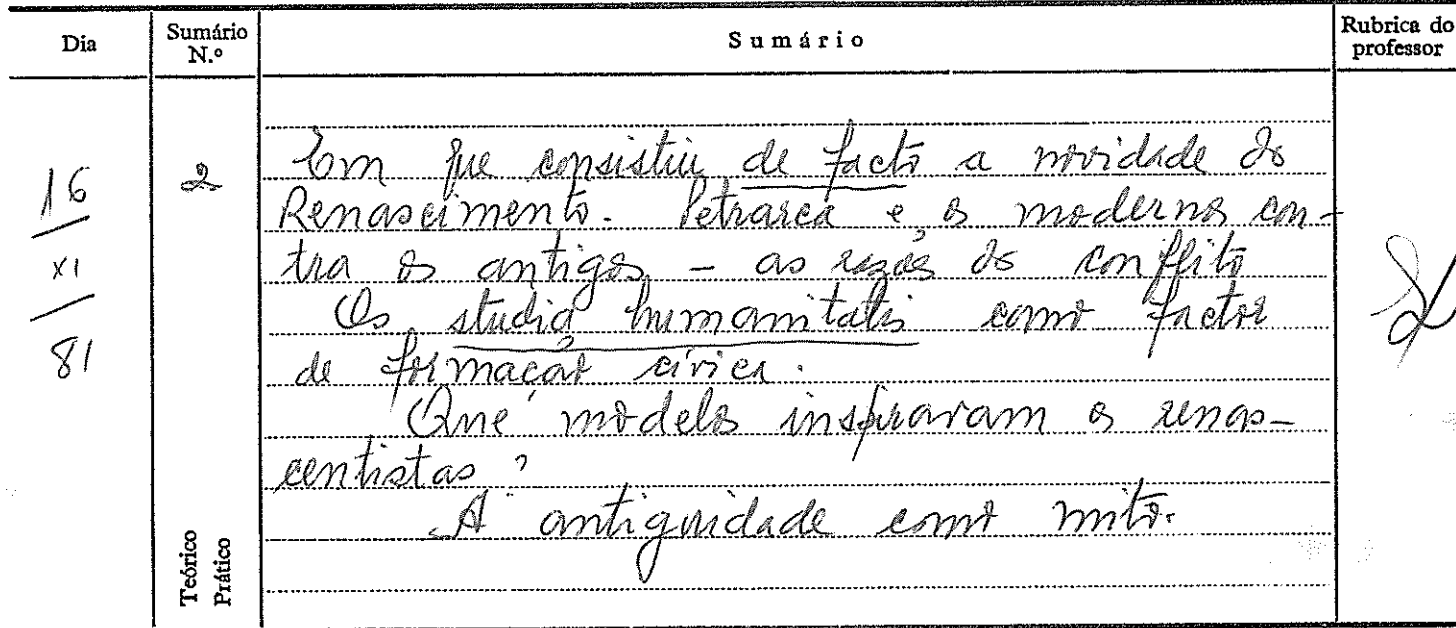 Dia
Sumário N.º
Sumário
Rubrica do professor
16
XI
81
2
Em que consistiu de facto a novidade do
Renascimento. Petrarca e os modernos con-
tra os antigos - as razões do conflito
Os studia humanitatis como factor
de formação cívica.
Que modelos inspiraram os renas-
centistas?
A antiguidade como mito.
Teórico
Prático